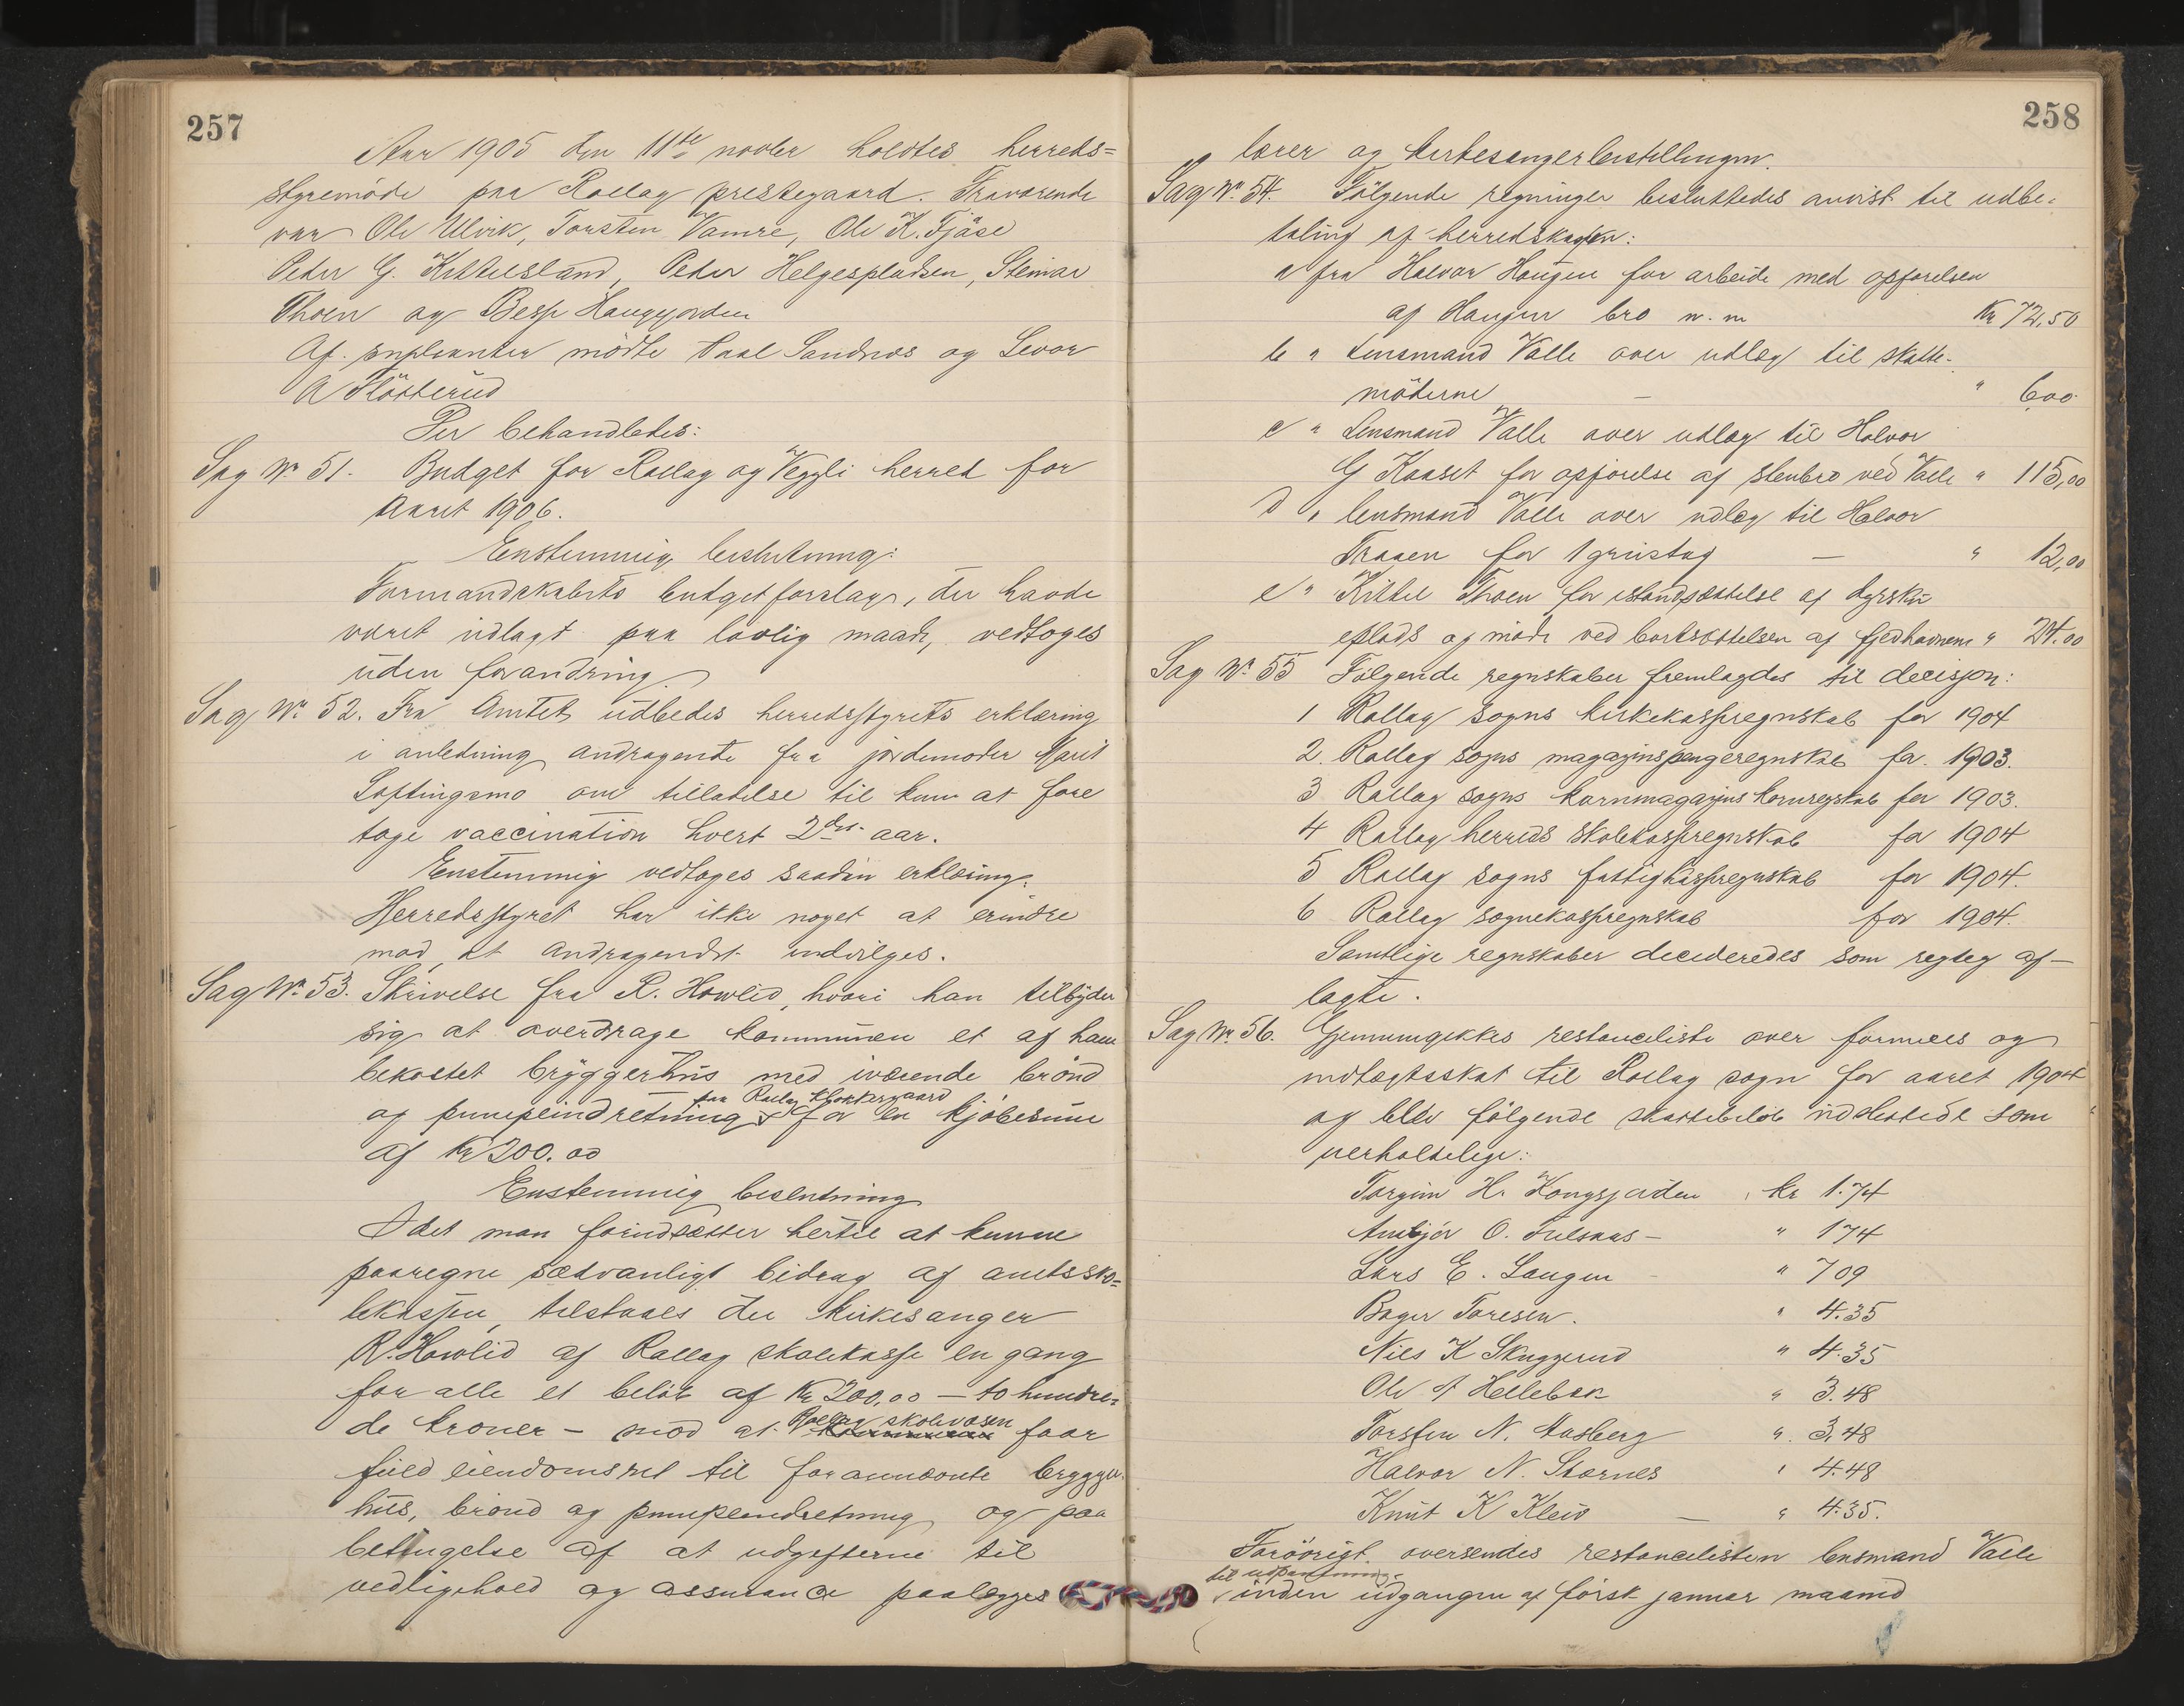 257
Aar 1905 den 11te novbr holdtes herreds=
styremöde paa Rollag prestegaard. Fraværende
var Ole Ulvik, Torsten Vamre, Ole K. Fjöse
Peder G. Kittelsland, Peder Helgespladsen, Steinar
Thoen og Besse Haugjorden
Af supleanter mödte Paal Sandnes og Sevor
A Flötterud
Der behandledes:
Sag No 51. Budget for Rollag og Veggli herred for
Aaret 1906.
Enstemmig beslutning:
Formandskabets budgetforslag, der havde
været udlagt paa lovlig maade, vedtoges
uden forandring.
Sag No 52. Fra Amtet udbedes herredsstyrets erklæring
i anledning andragende fra jordemoder Marit
Loftingsmo om tilladelse til kun at fore
tage vaccination hvert 2det aar.
Enstemmig vedtoges saadan erklæring:
Herredsstyret har ikke noget at erindre
mod at andragendet indvilges.
Sag No 53. Skrivelse fra R. Howlid, hvori han tilbyder
sig at overdrage kommunen et af ham
bekostet bryggerhus med iværende brönd
paa Rollag klokkergaard
og pumpeindretning for en kjöbesum
af Kr 200.00
Enstemmig beslutning
Idet man forudsætter hertil at kunne
paaregne sædvanligt bidrag af amtssko=
lekassen, tilstaaes der kirkesanger
R. Howlid af Rollag skolekasse en gang
for alle et belöb af Kr 200,00 – to hundre=
Rollag skolevæsen
de kroner – mod at kommunen faar
fuld eiendomsret til forannævnte brygger
hus, brönd og pumpeindretning og paa
betingelse af at udgifterne til
vedligehold og assurance paalægges
258
lærer og kirkesangerbestillingen.
Sag No 54. Fölgende regninger besluttedes anvist til udbe=
taling af herredskassen:
a fra Halvor Haugen for arbeide med opförelsen
af Haugen bro m. m Kr 72,50
b " Lensmand Valle over udlæg til skatte-
möderne — " 6,00
c " Lensmand Valle over udlæg til Halvor
G Kaaset for opförelse af stenbro ved Valle " 115,00
d " lensmand Valle over udlæg til Halvor
Traaen for 1 grustag — " 12,00
e " Kittel Thoen for istandsættelse af dyrsku
eplads og möde ved bortsættelsen af fjedhavnene " 24.00
Sag No 55 Fölgende regnskaber fremlagdes til decisjon:
1 Rollag sogns kirkekasseregnskab for 1904
2. Rollag sogns magazinspengeregnskab for 1903.
3 Rollag sogns kornmagazins kornregnskab for 1903.
4 Rollag herreds skolekasseregnskab for 1904
5 Rollag sogns fattigkasseregnskab for 1904.
6 Rollag sognekasseregnskab for 1904.
Samtlige regnskaber decideredes som regtig af–
lagte.
Sag No 56. Gjennemgikkes restanceliste over formues og
indtægtsskat til Rollag sogn for aaret 1904
og blev fölgende skattebelöb udslettede som
uerholdelige:
Torgrim H. Kongsjorden kr 1.74
Anbjör O. Fulsaas – " 174
Lars E. Laugen " 709
Boger Toresen. " 4.35
Niels K Skuggerud " 4.35
Ole A Hellebæk " 3.48
Torsten N. Aasberg " 3,48
Halvor N. Stærnes " 4.48
Knut K Kleiv — " 4.35.
Foröurigt oversendes restancelisten lensmand Valle
til udpantning
inden udgangen af först januar maaned